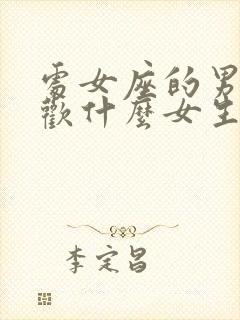 處女座的男
歡什麼女生
李定昌